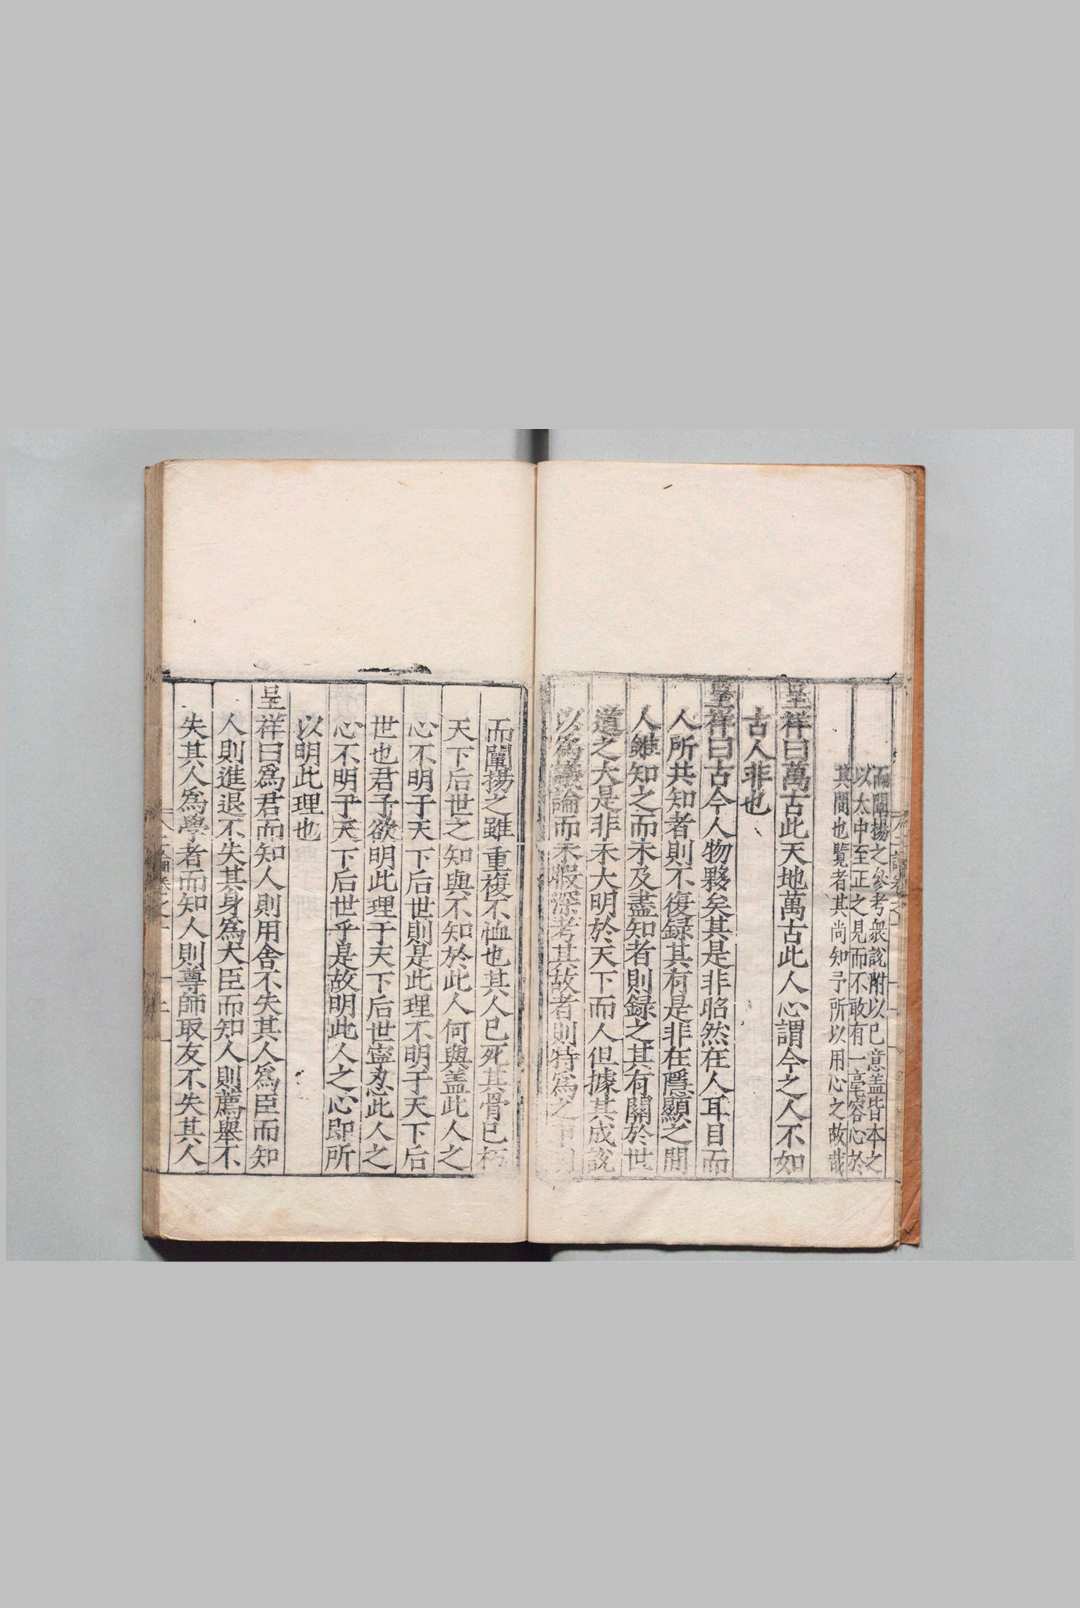 而闡揚之參考衆說附以己意盖皆本之
以太中至正之見而不敢有一毫容心於
其間也覽者其尚知予所以用心之故哉
呈祥曰萬古此天地萬古此人心謂今之人不如
古人非也
呈祥曰古今人物夥矣其是非昭然在人耳目而
人所共知者則不復録其有是非在隱顯之間
人雖知之而未及盡知者則録之其有關於世
道之大是非未大明於天下而人但據其成說
以爲議論而未暇深考其故者則特爲之申明
而闡揚之雖重複不恤也其人已死其骨已朽
天下后世之知與不知於此人何與盖此人之
心不明于天下后世則是此理不明于天下后
世也君子欲明此理于天下后世寧忍此人之
心不明于天下后世乎是故明此人之心即所
以明此理也
呈祥曰爲君而知人則用舍不失其人爲臣而知
人則進退不失其身爲大臣而知人則薦舉不
失其人爲學者而知人則尊師取友不失其人